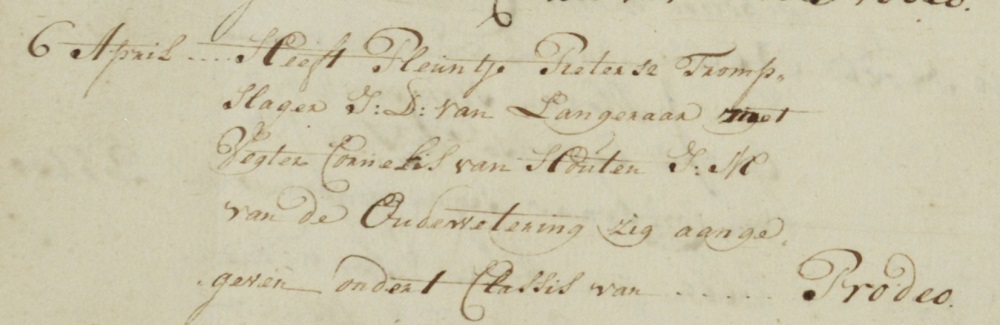 6 April .... Heeft Pleuntje Pieterse Tromp„
slager J: D: van Langeraar met
Vegter Cornelis van Houten J: M
van de Oudewetering zig aange„
geven ondert Classis van ..... Prodeo.